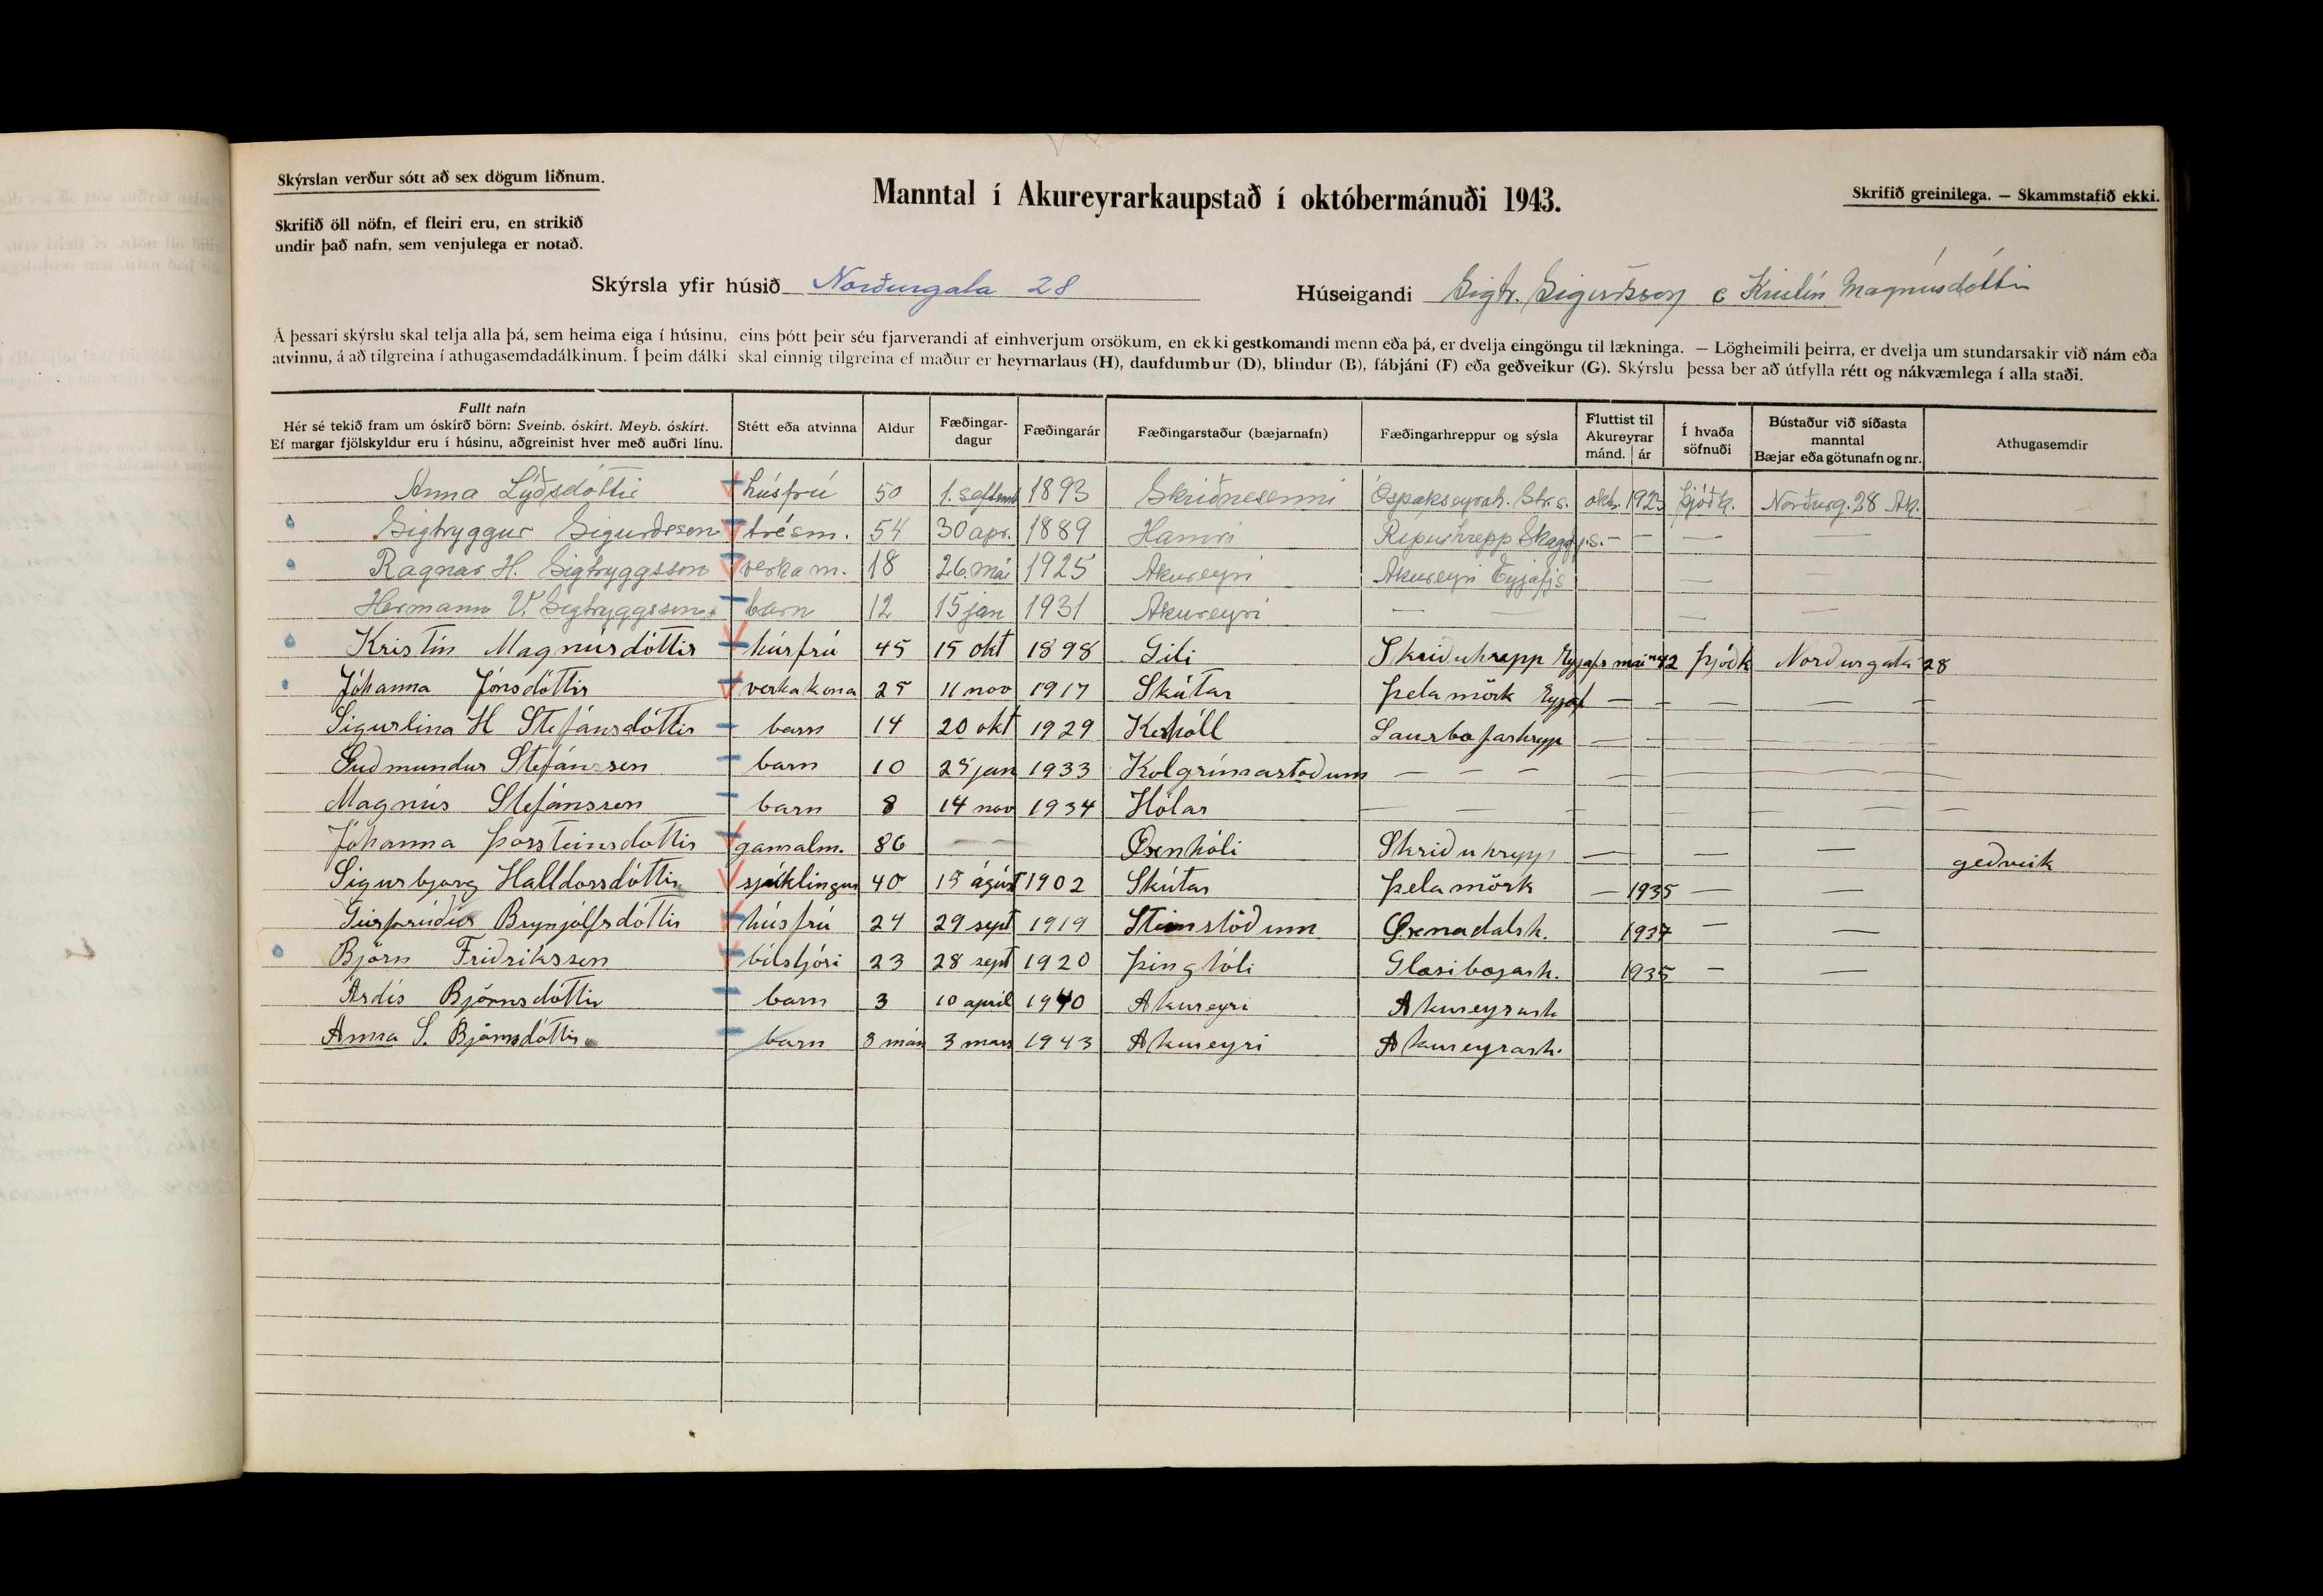 Skýrslan verður sótt að sex dögum liðnum.
Skrifið öll nöfn, ef fleiri eru, en strikið
undir það nafn, sem venjulega er notað.
Manntal í Akureyrarkaupstað í októbermánuði 1943.
Skrifið greinilega. — Skammstafið ekki.
Skýrsla yfir húsið Norðurgata 28 Húseigandi Sigtr. Sigurðsson & Kristín Magnúsdóttir
Á þessari skýrslu skal telja alla þá, sem heima eiga í húsinu, eins þótt þeir séu fjarverandi af einhverjum orsökum, en ekki gestkomandi menn eða þá, er dvelja eingöngu til lækninga. — Lögheimili þeirra, er dvelja um stundarsakir við nám eða
atvinnu, á að tilgreina í athugasemdadálkinum. Í þeim dálki skal einnig tilgreina ef maður er heyrnarlaus (H), daufdumbur (D), blindur (B), fábjáni (F) eða geðveikur (G). Skýrslu þessa ber að útfylla rétt og nákvæmlega í alla staði.
Fullt nafn
Hér sé tekið fram um óskírð börn: Sveinb. óskírt. Meyb. óskírt.
Ef margar fjölskyldur eru í húsinu, aðgreinist hver með auðri línu.
Stétt eða atvinna
Aldur
Fæðingar-
dagur
Fæðingarár
Fæðingarstaður (bæjarnafn)
Fæðingarhreppur og sýsla
Fluttist til
Akureyrar
mánd. ár
Í hvaða
söfnuði
Bústaður við síðasta
manntal
Bæjar eða götunafn og nr.
Athugasemdir
Anna Lýðsdóttir húsfrú 50 1. septemb 1893 Skriðnesenni Óspakseyrarh. Str.s. okt. 1923 Þjóðk. Norðurg. 28 Ak.
Sigtryggur Sigurðsson trésm. 54 30 apr. 1889 Hamri Rípurhrepp Skagafj.s. — — — —
Ragnar H. Sigtryggsson verkam. 18 26. maí 1925 Akureyri Akureyri Eyjafjs — —
Hermann V. Sigtryggsson barn 12 15 jan 1931 Akureyri — — — —
Kristín Magnúsdóttir húsfrú 45 15 okt 1898 Gili Skriðuhrepp Eyjafs mai 42 Þjóðk Norðurgata 28
Jóhanna Jónsdóttir verkakona 25 11 nov 1917 Skútar Þelamörk Eyjaf — — — — —
Sigurlina H Stefánsdóttir barn 14 20 okt 1929 Kerhóll Saurbæjarhrepp — — — —
Guðmundur Stefánsson barn 10 25 jan 1933 Kolgrímastoðum — — — — — —
Magnús Stefánsson barn 8 14 nov 1934 Hólar — — — — — —
Jóhanna Þorsteinsdottir gamalm. 86 — — Öxnhóli Skriðuhrepp — — — geðveik
Sigurbjorg Halldorsdóttir sjúklingur 40 15 ágúst 1902 Skútar Þelamörk — 1935 — —
Geirþrúður Brynjólfsdóttir húsfrú 24 29 sept 1919 Steinstöðum Öxnadalsh. 1937 — —
Björn Friðriksson bílstjóri 23 28 sept 1920 Þinghóli Glæsibæjarh. 1935 — —
Árdís Björnsdóttir barn 3 10 april 1940 Akureyri Akureyrarh
Anna S. Björnsdóttir barn 8 mán 3 mars 1943 Akureyri Akureyrarh.